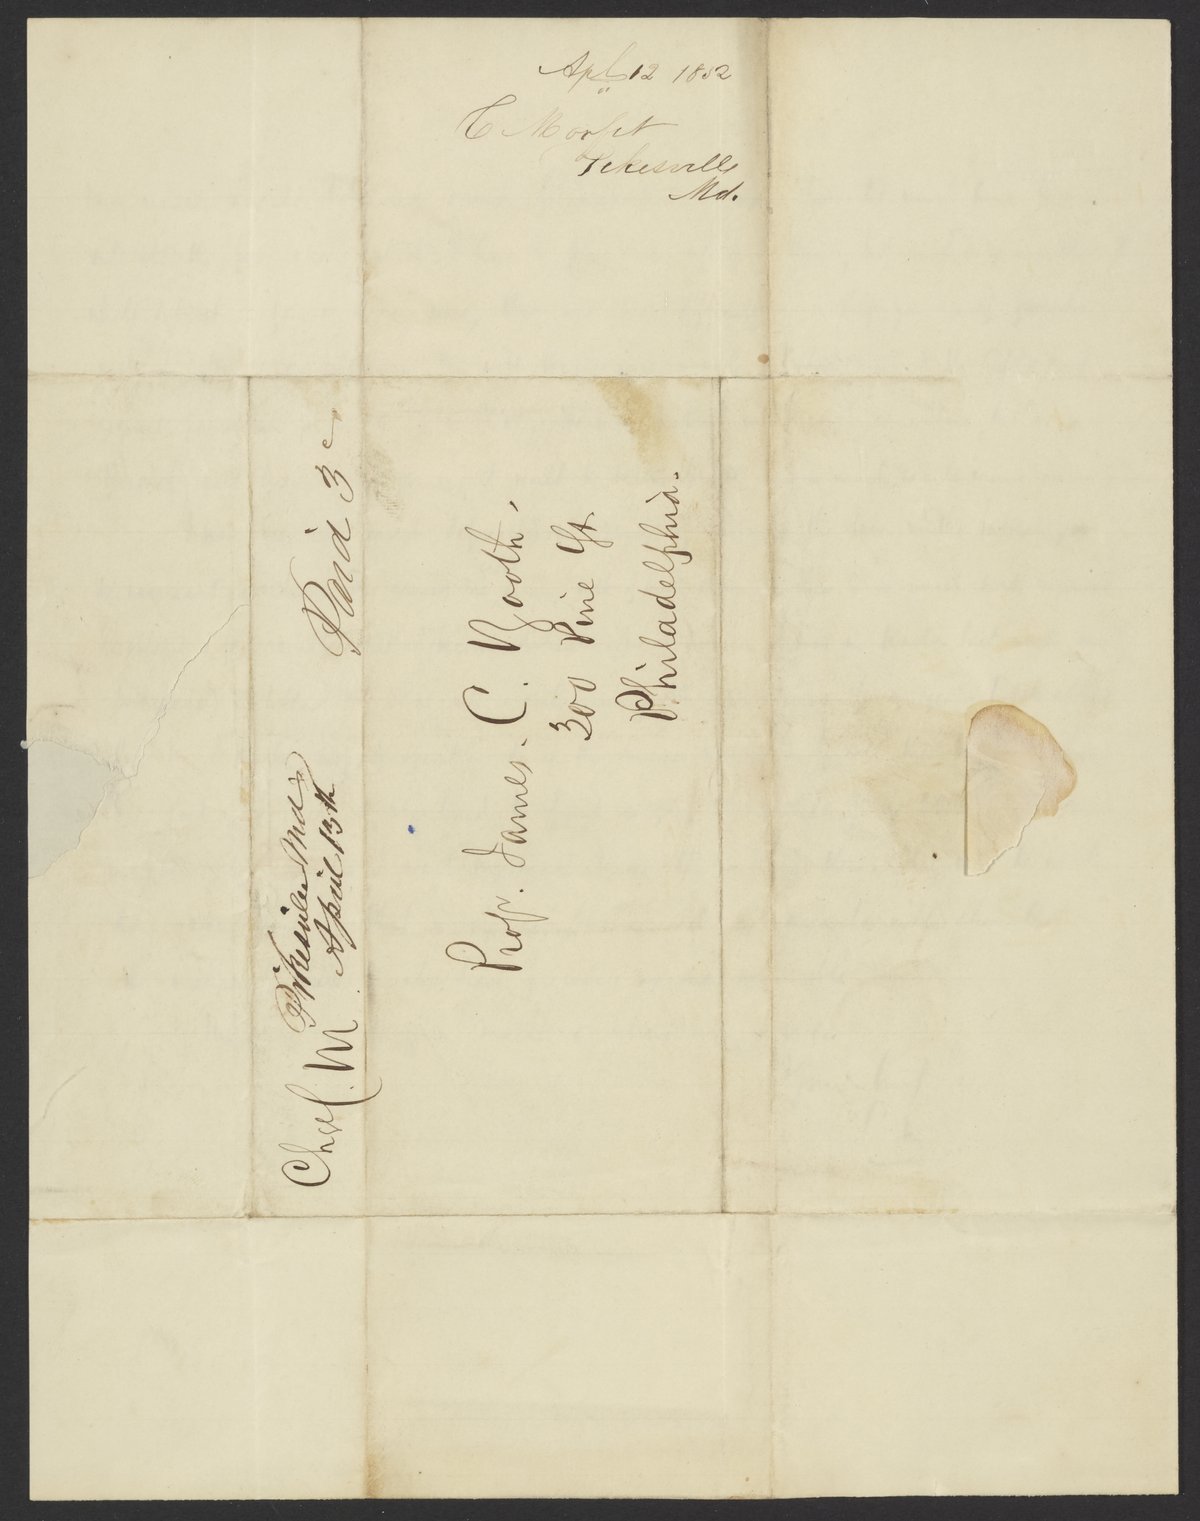 Apl 12 1852
C Morfit
Pikesville
Md.
Pikesville Md
April 13th
Paid 3c
Chs. M
Prof. James. C. Booth,
300 Pine St.
Philadelphia.